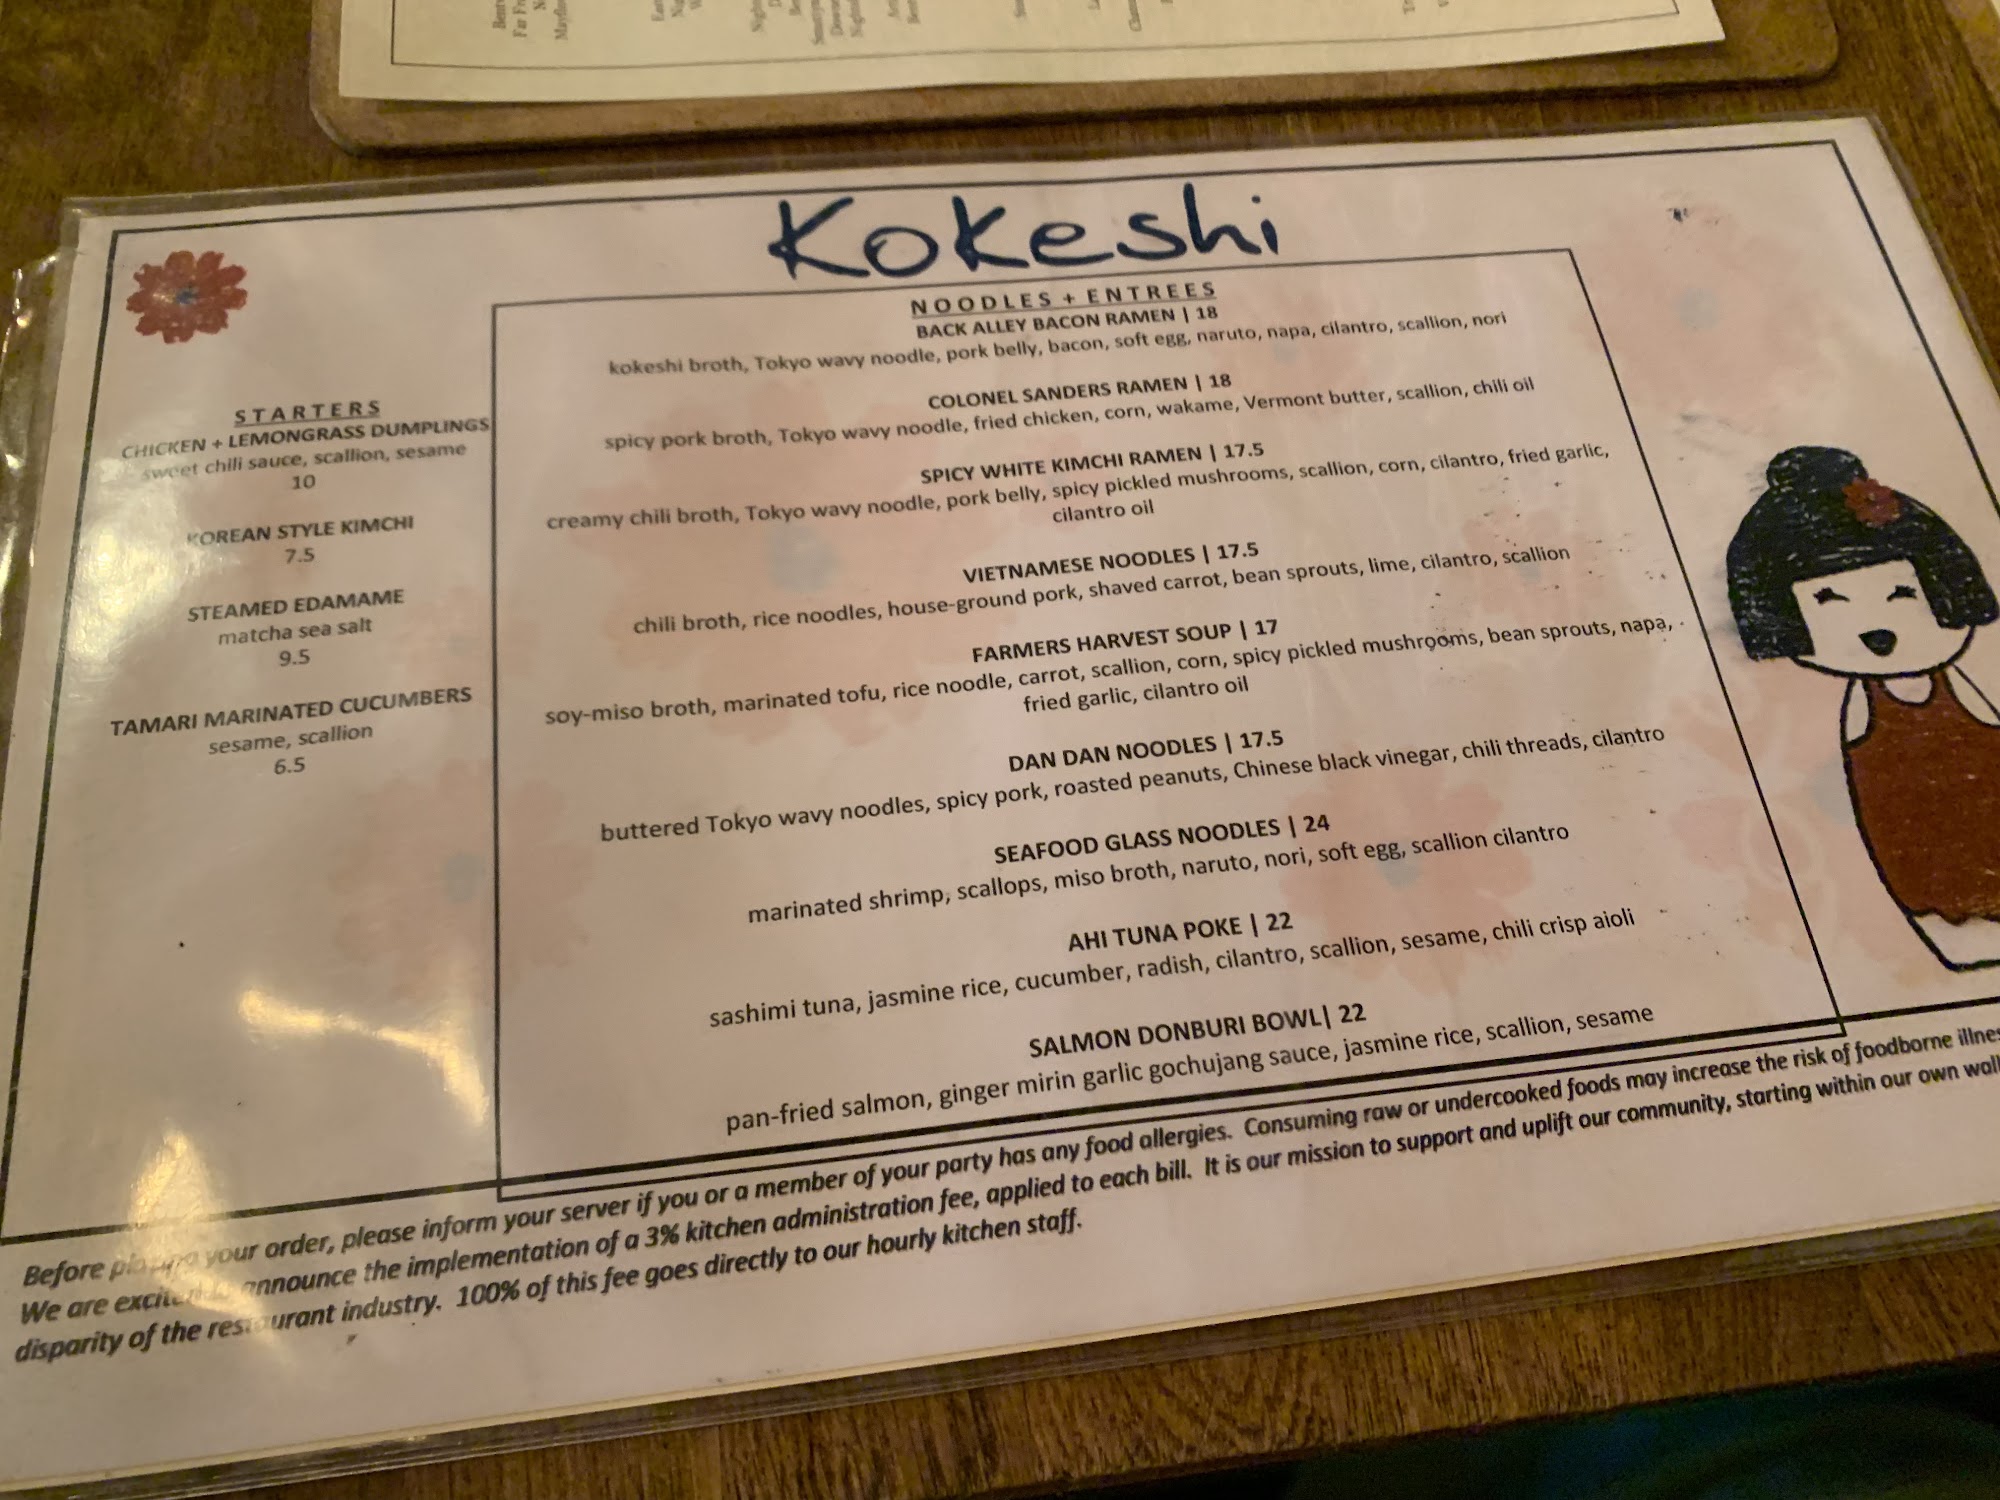 Kokeshi
STARTERS
CHICKEN + LEMONGRASS DUMPLINGS
sweet chili sauce, scallion, sesame
10
KOREAN STYLE KIMCHI
7.5
STEAMED EDAMAME
matcha sea salt
9.5
TAMARI MARINATED CUCUMBERS
sesame, scallion
6.5
NOODLES + ENTREES
BACK ALLEY BACON RAMEN | 18
kokeshi broth, Tokyo wavy noodle, pork belly, bacon, soft egg, naruto, napa, cilantro, scallion, nori
COLONEL SANDERS RAMEN | 18
spicy pork broth, Tokyo wavy noodle, fried chicken, corn, wakame, Vermont butter, scallion, chili oil
SPICY WHITE KIMCHI RAMEN | 17.5
creamy chili broth, Tokyo wavy noodle, pork belly, spicy pickled mushrooms, scallion, corn, cilantro, fried garlic,
cilantro oil
VIETNAMESE NOODLES | 17.5
chili broth, rice noodles, house-ground pork, shaved carrot, bean sprouts, lime, cilantro, scallion
FARMERS HARVEST SOUP | 17
soy-miso broth, marinated tofu, rice noodle, carrot, scallion, corn, spicy pickled mushrooms, bean sprouts, napa,
fried garlic, cilantro oil
DAN DAN NOODLES | 17.5
buttered Tokyo wavy noodles, spicy pork, roasted peanuts, Chinese black vinegar, chili threads, cilantro
SEAFOOD GLASS NOODLES | 24
marinated shrimp, scallops, miso broth, naruto, nori, soft egg, scallion cilantro
AHI TUNA POKE | 22
sashimi tuna, jasmine rice, cucumber, radish, cilantro, scallion, sesame, chili crisp aioli
SALMON DONBURI BOWL| 22
pan-fried salmon, ginger mirin garlic gochujang sauce, jasmine rice, scallion, sesame
Before placing your order, please inform your server if you or a member of your party has any food allergies. Consuming raw or undercooked foods may increase the risk of foodborne illnes
We are excited to announce the implementation of a 3% kitchen administration fee, applied to each bill. It is our mission to support and uplift our community, starting within our own wall
disparity of the restaurant industry. 100% of this fee goes directly to our hourly kitchen staff.